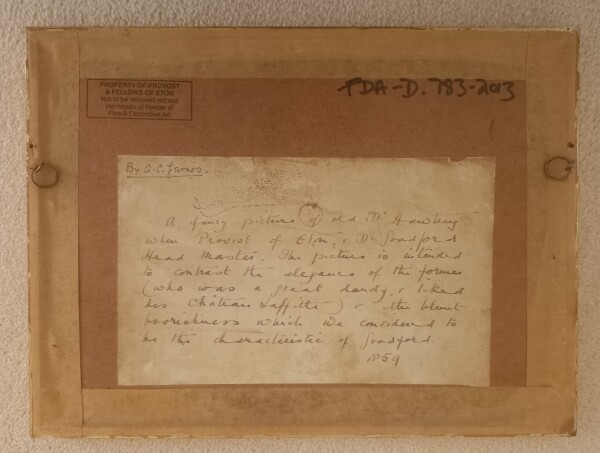 PROPERTY OF PROVOST
& FELLOWS OF ETON
Not to be removed without
permission of Keeper of
Fine & Decorative Art
FDA-D.783-2013
By A.C. James.
A fancy picture of old Dr Hawtrey
when Provost of Eton, & Dr Goodford
Head Master. The picture is intended
to contrast the elegance of the former
(who was a great dandy, & liked
his Château Laffitte) & the blunt
boorishness which we considered to
be the characteristic of Goodford.
1859